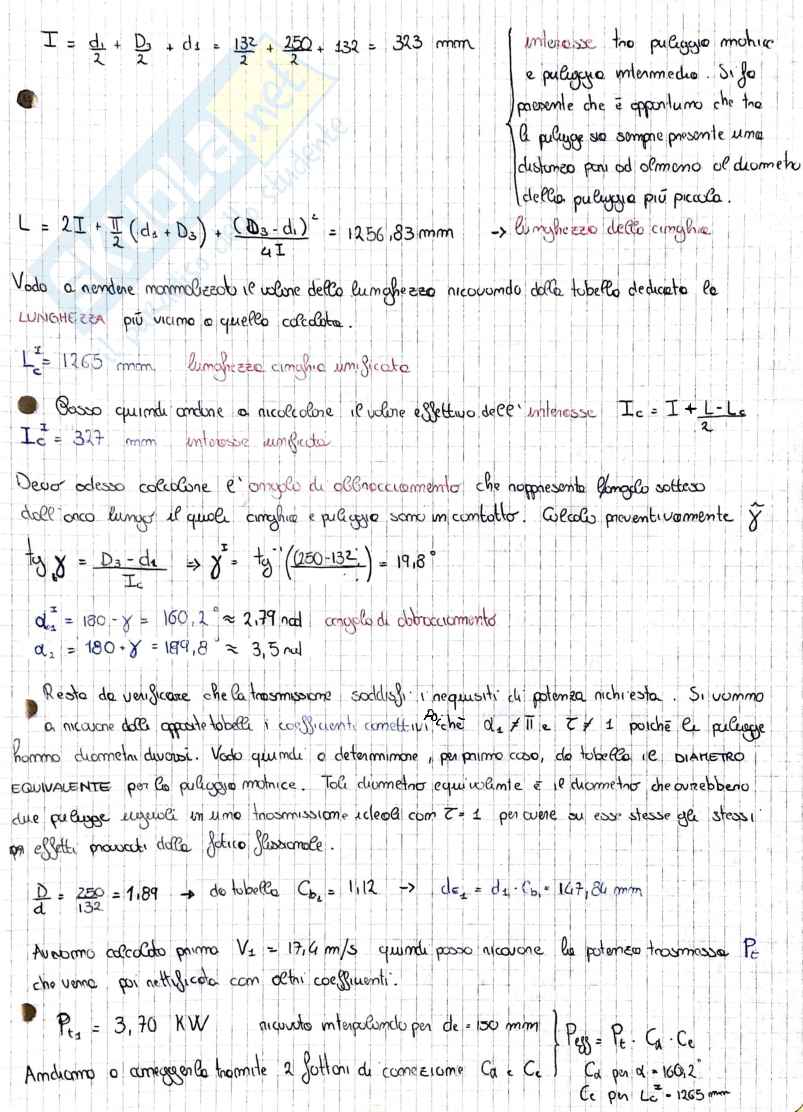 I = d1/2 + D3/2 + d1 = 132/2 + 250/2 + 132 = 323 mm
interasse tra puleggia motrice
e puleggia intermedia. Si fa
presente che è opportuno che tra
le pulegge sia sempre presente una
distanza pari ad almeno al diametro
della puleggia più piccola.
L = 2I + π/2 (d1 + D3) + (D3 - d1)²/4I = 1256,83 mm → lunghezza della cinghia
Vado a rendere normalizzato il valore della lunghezza ricavando dalla tabella dedicata la
LUNGHEZZA più vicino a quella calcolata.
Lc^I = 1265 mm lunghezza cinghia unificata
Passo quindi andare a ricalcolare il valore effettivo dell'interasse Ic = I + L - Lc/2
Ic^I = 327 mm interasse unificata
Devo adesso calcolare l'angolo di abbracciamento che rappresenta l'angolo sotteso
dall'arco lungo il quale cinghia e puleggia sono in contatto. Calcolo preventivamente γ
tg γ = D3 - d1/Ic ⇒ γ^I = tg⁻¹((250-132)/) = 19,8°
α1^I = 180 - γ = 160,2° ≈ 2,79 rad angolo di abbracciamento
α2 = 180 + γ = 199,8° ≈ 3,5 rad
Resta da verificare che la trasmissione soddisfi i requisiti di potenza richiesta. Si vanno
a ricavare dalle apposite tabelle i coefficienti correttivi poichè α1 ≠ π e τ ≠ 1 poichè le pulegge
hanno diametri diversi. Vado quindi a determinare, per primo caso, da tabella il DIAMETRO
EQUIVALENTE per la puleggia motrice. Tale diametro equivalente è il diametro che avrebbero
due pulegge uguali in una trasmissione ideale con τ = 1 per avere su esse stesse gli stessi
effetti provocati dalla fatica flessionale.
D/d = 250/132 = 1,89 → da tabella Cb1 = 1,12 → de1 = d1 · Cb1 = 147,84 mm
Avevamo calcolato prima V1 = 17,4 m/s quindi posso ricavare la potenza trasmessa Pt
che verrà poi rettificata con altri coefficienti.
Pt1 = 3,70 KW ricavato interpolando per de = 150 mm
Andiamo a correggerla tramite 2 fattori di correzione Cα e Ce
Peff = Pt · Cα · Ce
Cα per α = 160,2°
Ce per Lc^I = 1265 mm